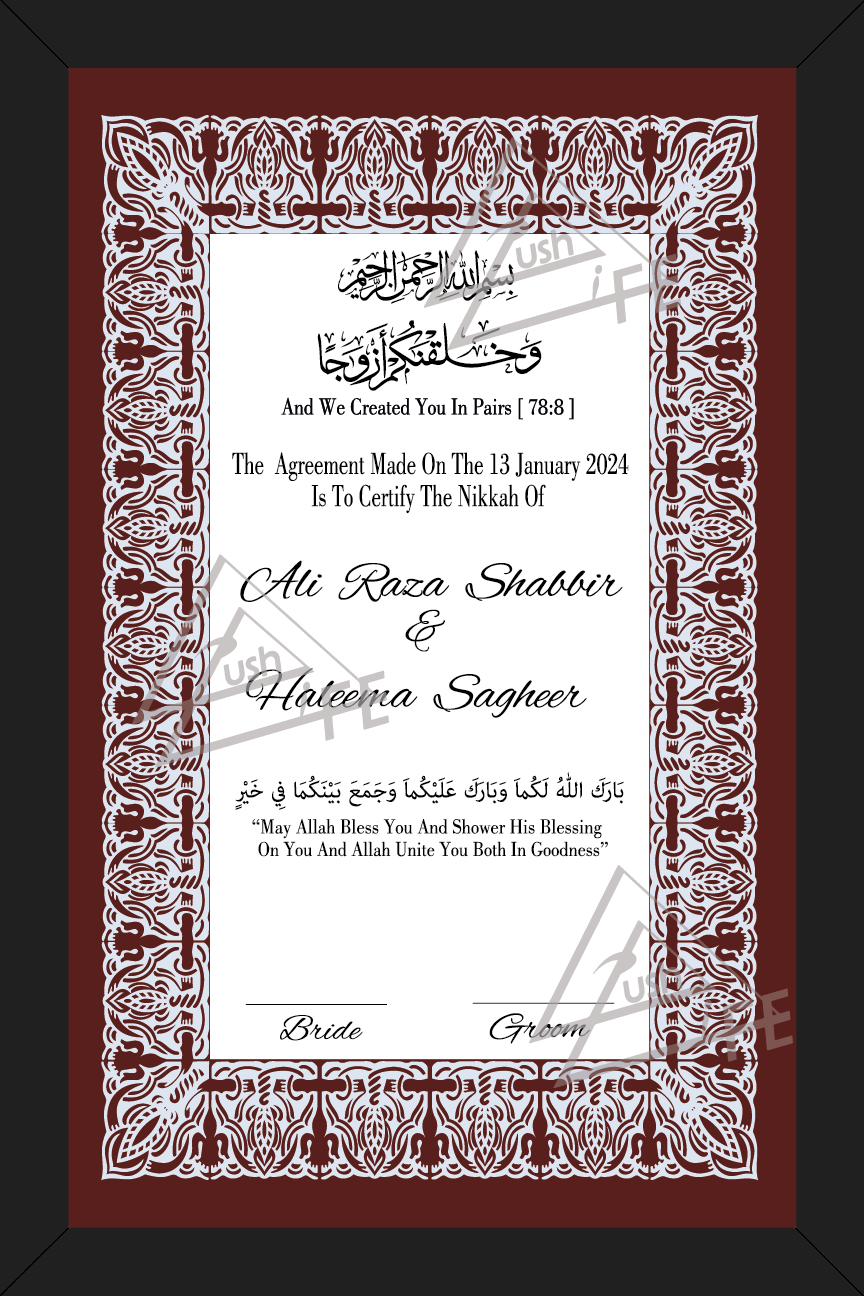 بِسْمِ اللهِ الرَّحْمٰنِ الرَّحِيْمِ
وَخَلَقْنَكُمْ أَزْوَجًا
And We Created You In Pairs [ 78:8 ]
The Agreement Made On The 13 January 2024
Is To Certify The Nikkah Of
Ali Raza Shabbir
&
Haleema Sagheer
بَارَكَ اللّٰهُ لَكُمَا وَبَارَكَ عَلَيْكُمَا وَجَمَعَ بَيْنَكُمَا فِي خَيْرٍ
“May Allah Bless You And Shower His Blessing
On You And Allah Unite You Both In Goodness”
Bride Groom